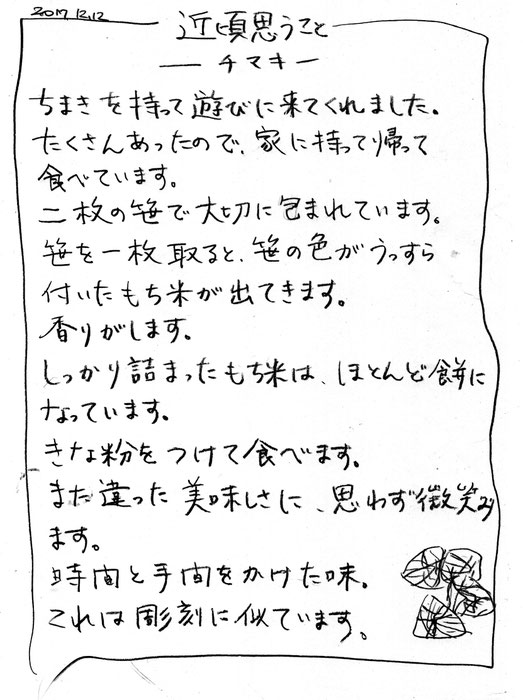 2017.12.12
近頃思うこと
— チマキ —
ちまきを持って遊びに来てくれました。
たくさんあったので、家に持って帰って
食べています。
二枚の笹で大切に包まれています。
笹を一枚取ると、笹の色がうっすら
付いたもち米が出てきます。
香りがします。
しっかり詰まったもち米は、ほとんど餅に
なっています。
きな粉をつけて食べます。
また違った美味しさに、思わず微笑み
ます。
時間と手間をかけた味。
これは彫刻に似ています。